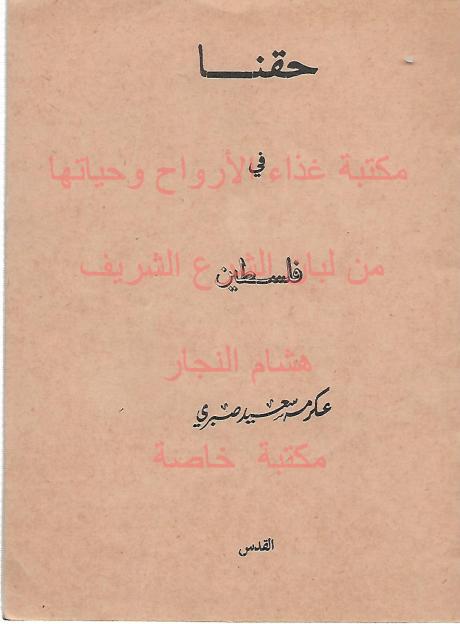 حقنا
في
مكتبة غذاء الأرواح وحياتها
فلسطين
من لباب الشرع الشريف
هشام النجار
عكرمه سعيد صبري
مكتبة خاصة
القدس